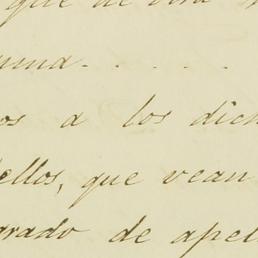 que de otra
os a los dich
ellos, que vean
grado de apel